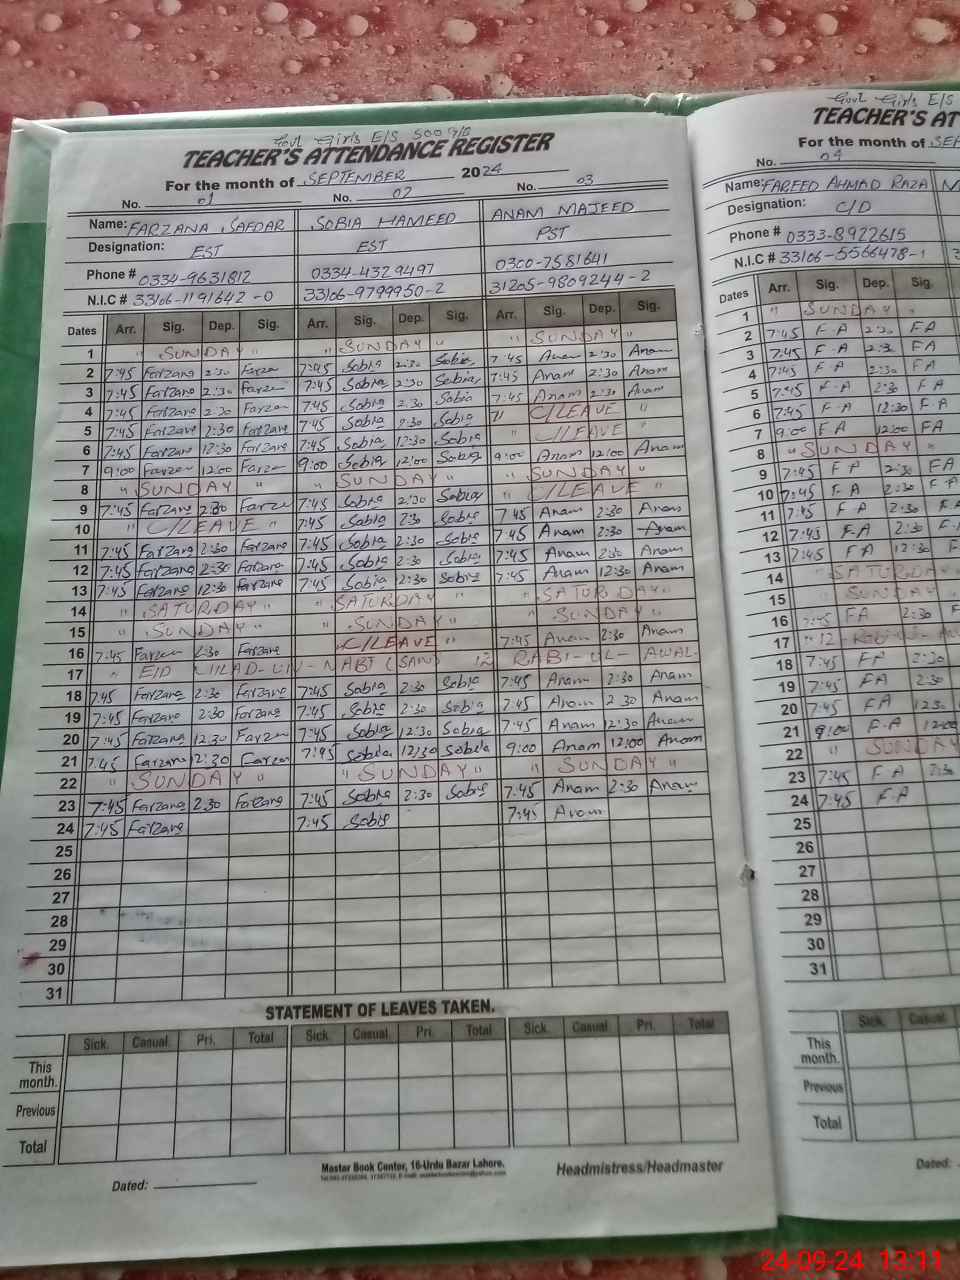 Govt Girls E/S 500 G/B
TEACHER'S ATTENDANCE REGISTER
For the month of SEPTEMBER 2024
No. 01 No. 02 No. 03
Name: FARZANA SAFDAR SOBIA HAMEED ANAM MAJEED
Designation: EST EST PST
Phone # 0334-9631812 0334-4329497 0300-7581641
N.I.C # 33106-1191642-0 33106-9799950-2 31205-9809244-2
Dates Arr. Sig. Dep. Sig. Arr. Sig. Dep. Sig. Arr. Sig. Dep. Sig.
1 " SUNDAY " " SUNDAY " " SUNDAY "
2 7:45 Farzana 2:30 Farzan 7:45 Sobia 2:30 Sobia 7:45 Anam 2:30 Anam
3 7:45 Farzana 2:30 Farzan 7:45 Sobia 2:30 Sobia 7:45 Anam 2:30 Anam
4 7:45 Farzana 2:30 Farzan 7:45 Sobia 2:30 Sobia 7:45 Anam 2:30 Anam
5 7:45 Farzana 2:30 Farzana 7:45 Sobia 2:30 Sobia " C/LEAVE "
6 7:45 Farzana 12:30 Farzana 7:45 Sobia 12:30 Sobia " C/LEAVE "
7 9:00 Farzan 12:00 Farzan 9:00 Sobia 12:00 Sobia 9:00 Anam 12:00 Anam
8 " SUNDAY " " SUNDAY " " SUNDAY "
9 7:45 Farzana 2:30 Farzan 7:45 Sobia 2:30 Sobia " C/LEAVE "
10 " C/LEAVE " 7:45 Sobia 2:30 Sobia 7:45 Anam 2:30 Anam
11 7:45 Farzana 2:30 Farzana 7:45 Sobia 2:30 Sobia 7:45 Anam 2:30 Anam
12 7:45 Farzana 2:30 Farzana 7:45 Sobia 2:30 Sobia 7:45 Anam 2:30 Anam
13 7:45 Farzana 12:30 Farzana 7:45 Sobia 12:30 Sobia 7:45 Anam 12:30 Anam
14 " SATURDAY " " SATURDAY " " SATURDAY "
15 " SUNDAY " " SUNDAY " " SUNDAY "
16 7:45 Farzan 2:30 Farzana " C/LEAVE " 7:45 Anam 2:30 Anam
17 " EID MILAD-UN-NABI (SAW) 12 RABI-UL-AWAL
18 7:45 Farzana 2:30 Farzana 7:45 Sobia 2:30 Sobia 7:45 Anam 2:30 Anam
19 7:45 Farzana 2:30 Farzana 7:45 Sobia 2:30 Sobia 7:45 Anam 2:30 Anam
20 7:45 Farzana 12:30 Farzan 7:45 Sobia 12:30 Sobia 7:45 Anam 12:30 Anam
21 7:45 Farzana 12:30 Farzan 7:45 Sobia 12:30 Sobia 9:00 Anam 12:00 Anam
22 " SUNDAY " " SUNDAY " " SUNDAY "
23 7:45 Farzana 2:30 Farzana 7:45 Sobia 2:30 Sobia 7:45 Anam 2:30 Anam
24 7:45 Farzana 7:45 Sobia 7:45 Anam
25
26
27
28
29
30
31
STATEMENT OF LEAVES TAKEN.
Sick. Casual. Pri. Total Sick. Casual. Pri. Total Sick. Casual. Pri. Total
This month.
Previous
Total
Master Book Center, 16-Urdu Bazar Lahore.
Dated: Headmistress/Headmaster
Govt Girls E/S
TEACHER'S AT
For the month of SEP
No. 04
Name: FAREED AHMAD RAZA M
Designation: C/D
Phone # 0333-8922615
N.I.C # 33106-5566478-1 3
Dates Arr. Sig. Dep. Sig.
1 " SUNDAY "
2 7:45 F-A 2:30 FA
3 7:45 F-A 2:30 FA
4 7:45 F-A 2:30 FA
5 7:45 F-A 2:30 FA
6 7:45 F-A 12:30 F-A
7 9:00 FA 12:00 FA
8 " SUNDAY "
9 7:45 FA 2:30 FA
10 7:45 FA 2:30 F-A
11 7:45 FA 2:30 F-A
12 7:45 F-A 2:30 F-A
13 7:45 FA 12:30 F-A
14 " SATURDAY
15 " SUNDAY
16 7:45 FA 2:30 F
17 " 12 RABI-UL-AW
18 7:45 FA 2:30
19 7:45 FA 2:30
20 7:45 FA 12:30
21 9:00 F-A 12:00
22 " SUNDAY
23 7:45 F-A 2:30
24 7:45 F-A
25
26
27
28
29
30
31
Sick. Casual.
This month.
Previous
Total
Dated:
24-09-24 13:11